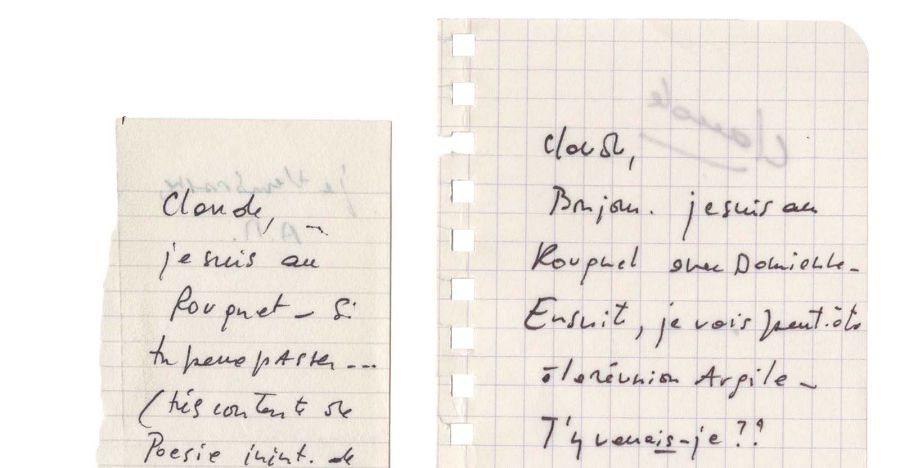 Claude,
je suis au
Rouquet – Si
tu peux passer...
(très contente de
Poesie inint. de
Claude,
Bonjour. je suis au
Rouquet avec Danielle –
Ensuite, je vais peut-être
à la réunion Argile –
T'y verrais-je ??